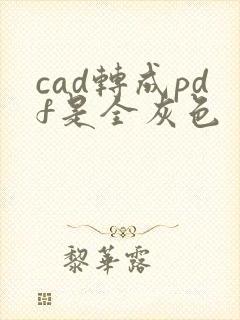 cad轉成pd
f是全灰色
黎華露